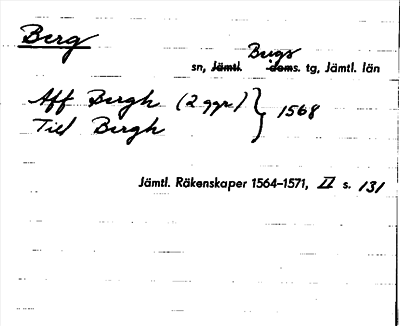 Berg
Bergs
sn, Jämtl. doms. tg, Jämtl. län
Aff Bergh (2 ggr)
Till Bergh
1568
Jämtl. Räkenskaper 1564–1571, II s. 131